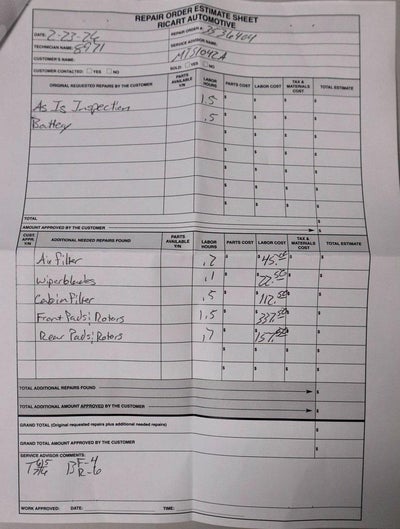 REPAIR ORDER ESTIMATE SHEET
RICART AUTOMOTIVE
DATE: 2-23-26 REPAIR ORDER #: 3536404
TECHNICIAN NAME: 8971 SERVICE ADVISOR NAME:
CUSTOMER'S NAME: MJS1042A
CUSTOMER CONTACTED: YES NO SOLD: YES NO
ORIGINAL REQUESTED REPAIRS BY THE CUSTOMER PARTS AVAILABLE Y/N LABOR HOURS PARTS COST LABOR COST TAX & MATERIALS COST TOTAL ESTIMATE
As Is Inspection 1.5 $ $ $ $
Battery .5 $ $ $ $
$ $ $ $
$ $ $ $
$ $ $ $
$ $ $ $
$ $ $ $
TOTAL
AMOUNT APPROVED BY THE CUSTOMER $
CUST. APPR. Y/N ADDITIONAL NEEDED REPAIRS FOUND PARTS AVAILABLE Y/N LABOR HOURS PARTS COST LABOR COST TAX & MATERIALS COST TOTAL ESTIMATE
Air filter .2 $ $45. $ $
Wiperblades .1 $ $22.50 $ $
Cabin Filter .5 $ $112.50 $ $
Front Pads; Rotors 1.5 $ $337.50 $ $
Rear Pads; Rotors .7 $ $157.50 $ $
$ $ $ $
$ $ $ $
TOTAL ADDITIONAL REPAIRS FOUND $
TOTAL ADDITIONAL AMOUNT APPROVED BY THE CUSTOMER $
GRAND TOTAL (Original requested repairs plus additional needed repairs) $
GRAND TOTAL AMOUNT APPROVED BY THE CUSTOMER $
SERVICE ADVISOR COMMENTS:
B F-4
R-6
WORK APPROVED: DATE: TIME: